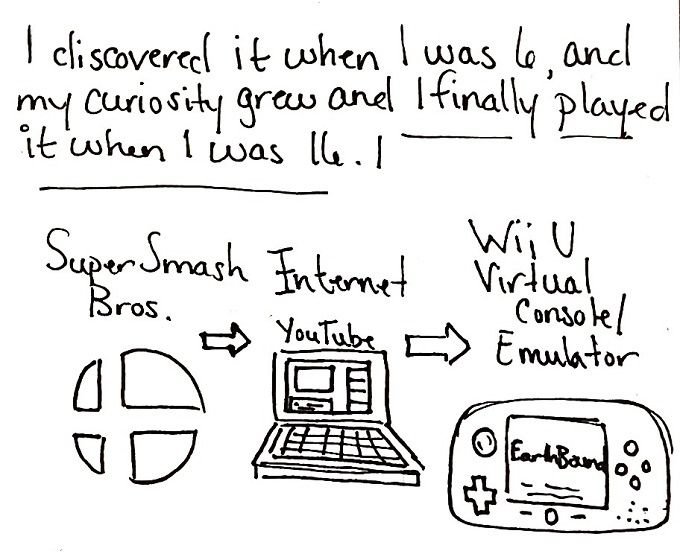 I discovered it when I was 6, and
my curiosity grew and I finally played
it when I was 16. I
Super Smash
Bros.
Internet
YouTube
Wii U
Virtual
Console/
Emulator
EarthBound